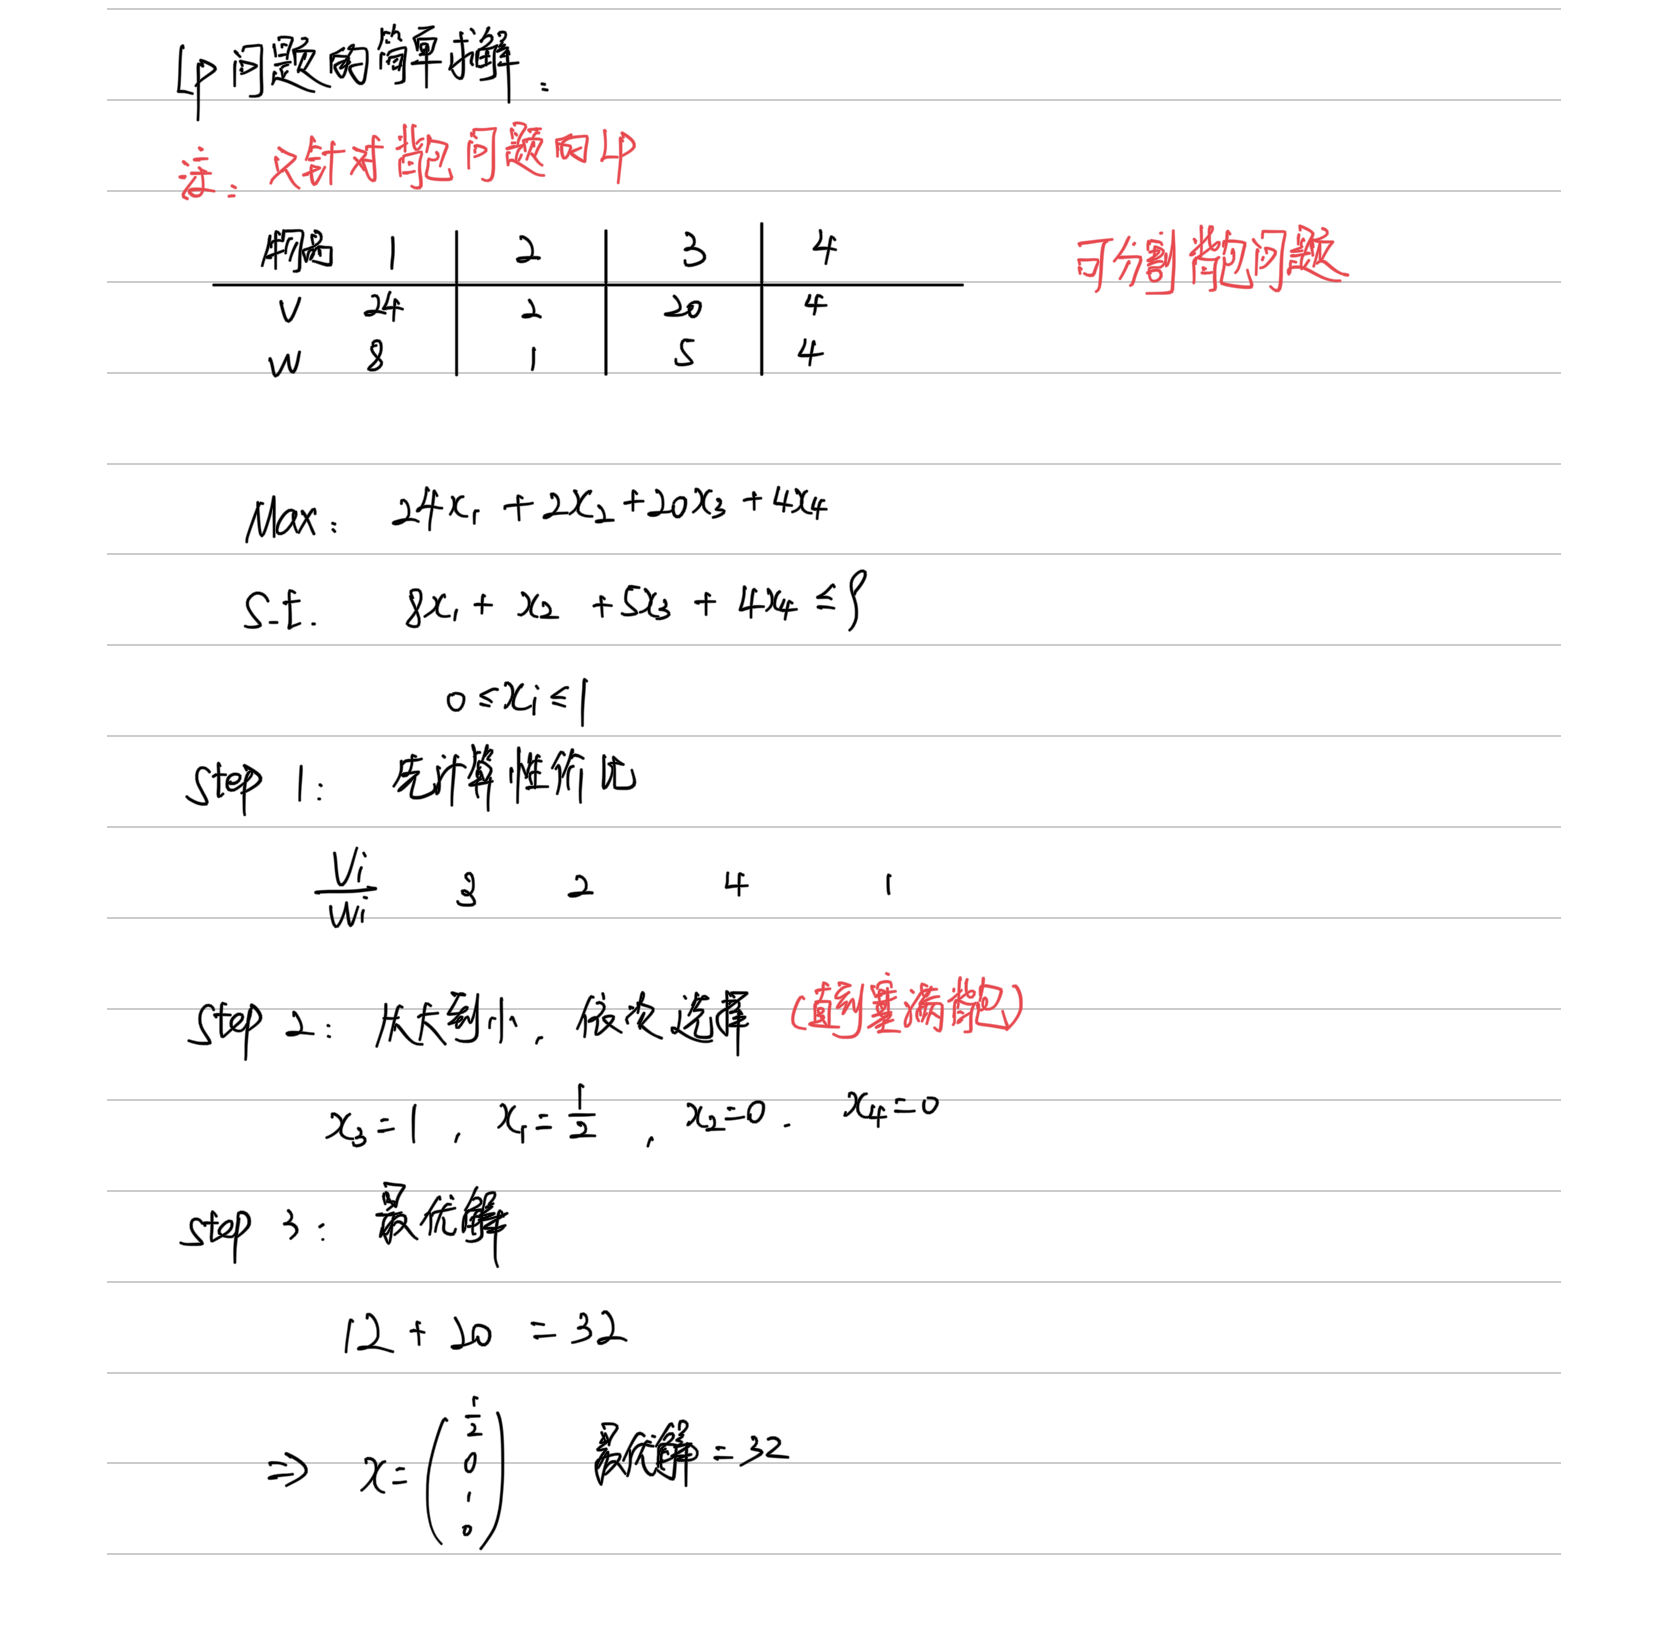 LP问题的简单求解：
注：只针对背包问题的LP
物品 1 2 3 4
可分割背包问题
V 24 2 20 4
W 8 1 5 4
Max: 24x₁ + 2x₂ + 20x₃ + 4x₄
S.t. 8x₁ + x₂ + 5x₃ + 4x₄ ≤ 9
0 ≤ xi ≤ 1
Step 1: 先计算性价比
Vi/Wi 3 2 4 1
Step 2: 从大到小，依次选择（直到塞满背包）
x₃=1, x₁=1/2, x₂=0. x₄=0
Step 3: 最优解
12 + 20 = 32
⇒ x= (1/2 0 1 0) 最优解=32